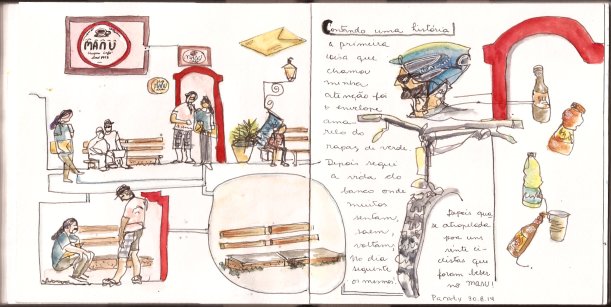 MANÜ
MANÜ
Contando uma história
a primeira
coisa que
chamou
minha
atenção foi
o envelope
ama-
relo do
rapaz de verde.
Depois segui
a vida do
banco onde
muitos
sentam,
saem,
voltam,
No dia
seguinte
os mesmos.
Depois quase
atropelada
por uns
vinte ci-
clistas que
foram beber
no MANU!
Paraty 30.8.14